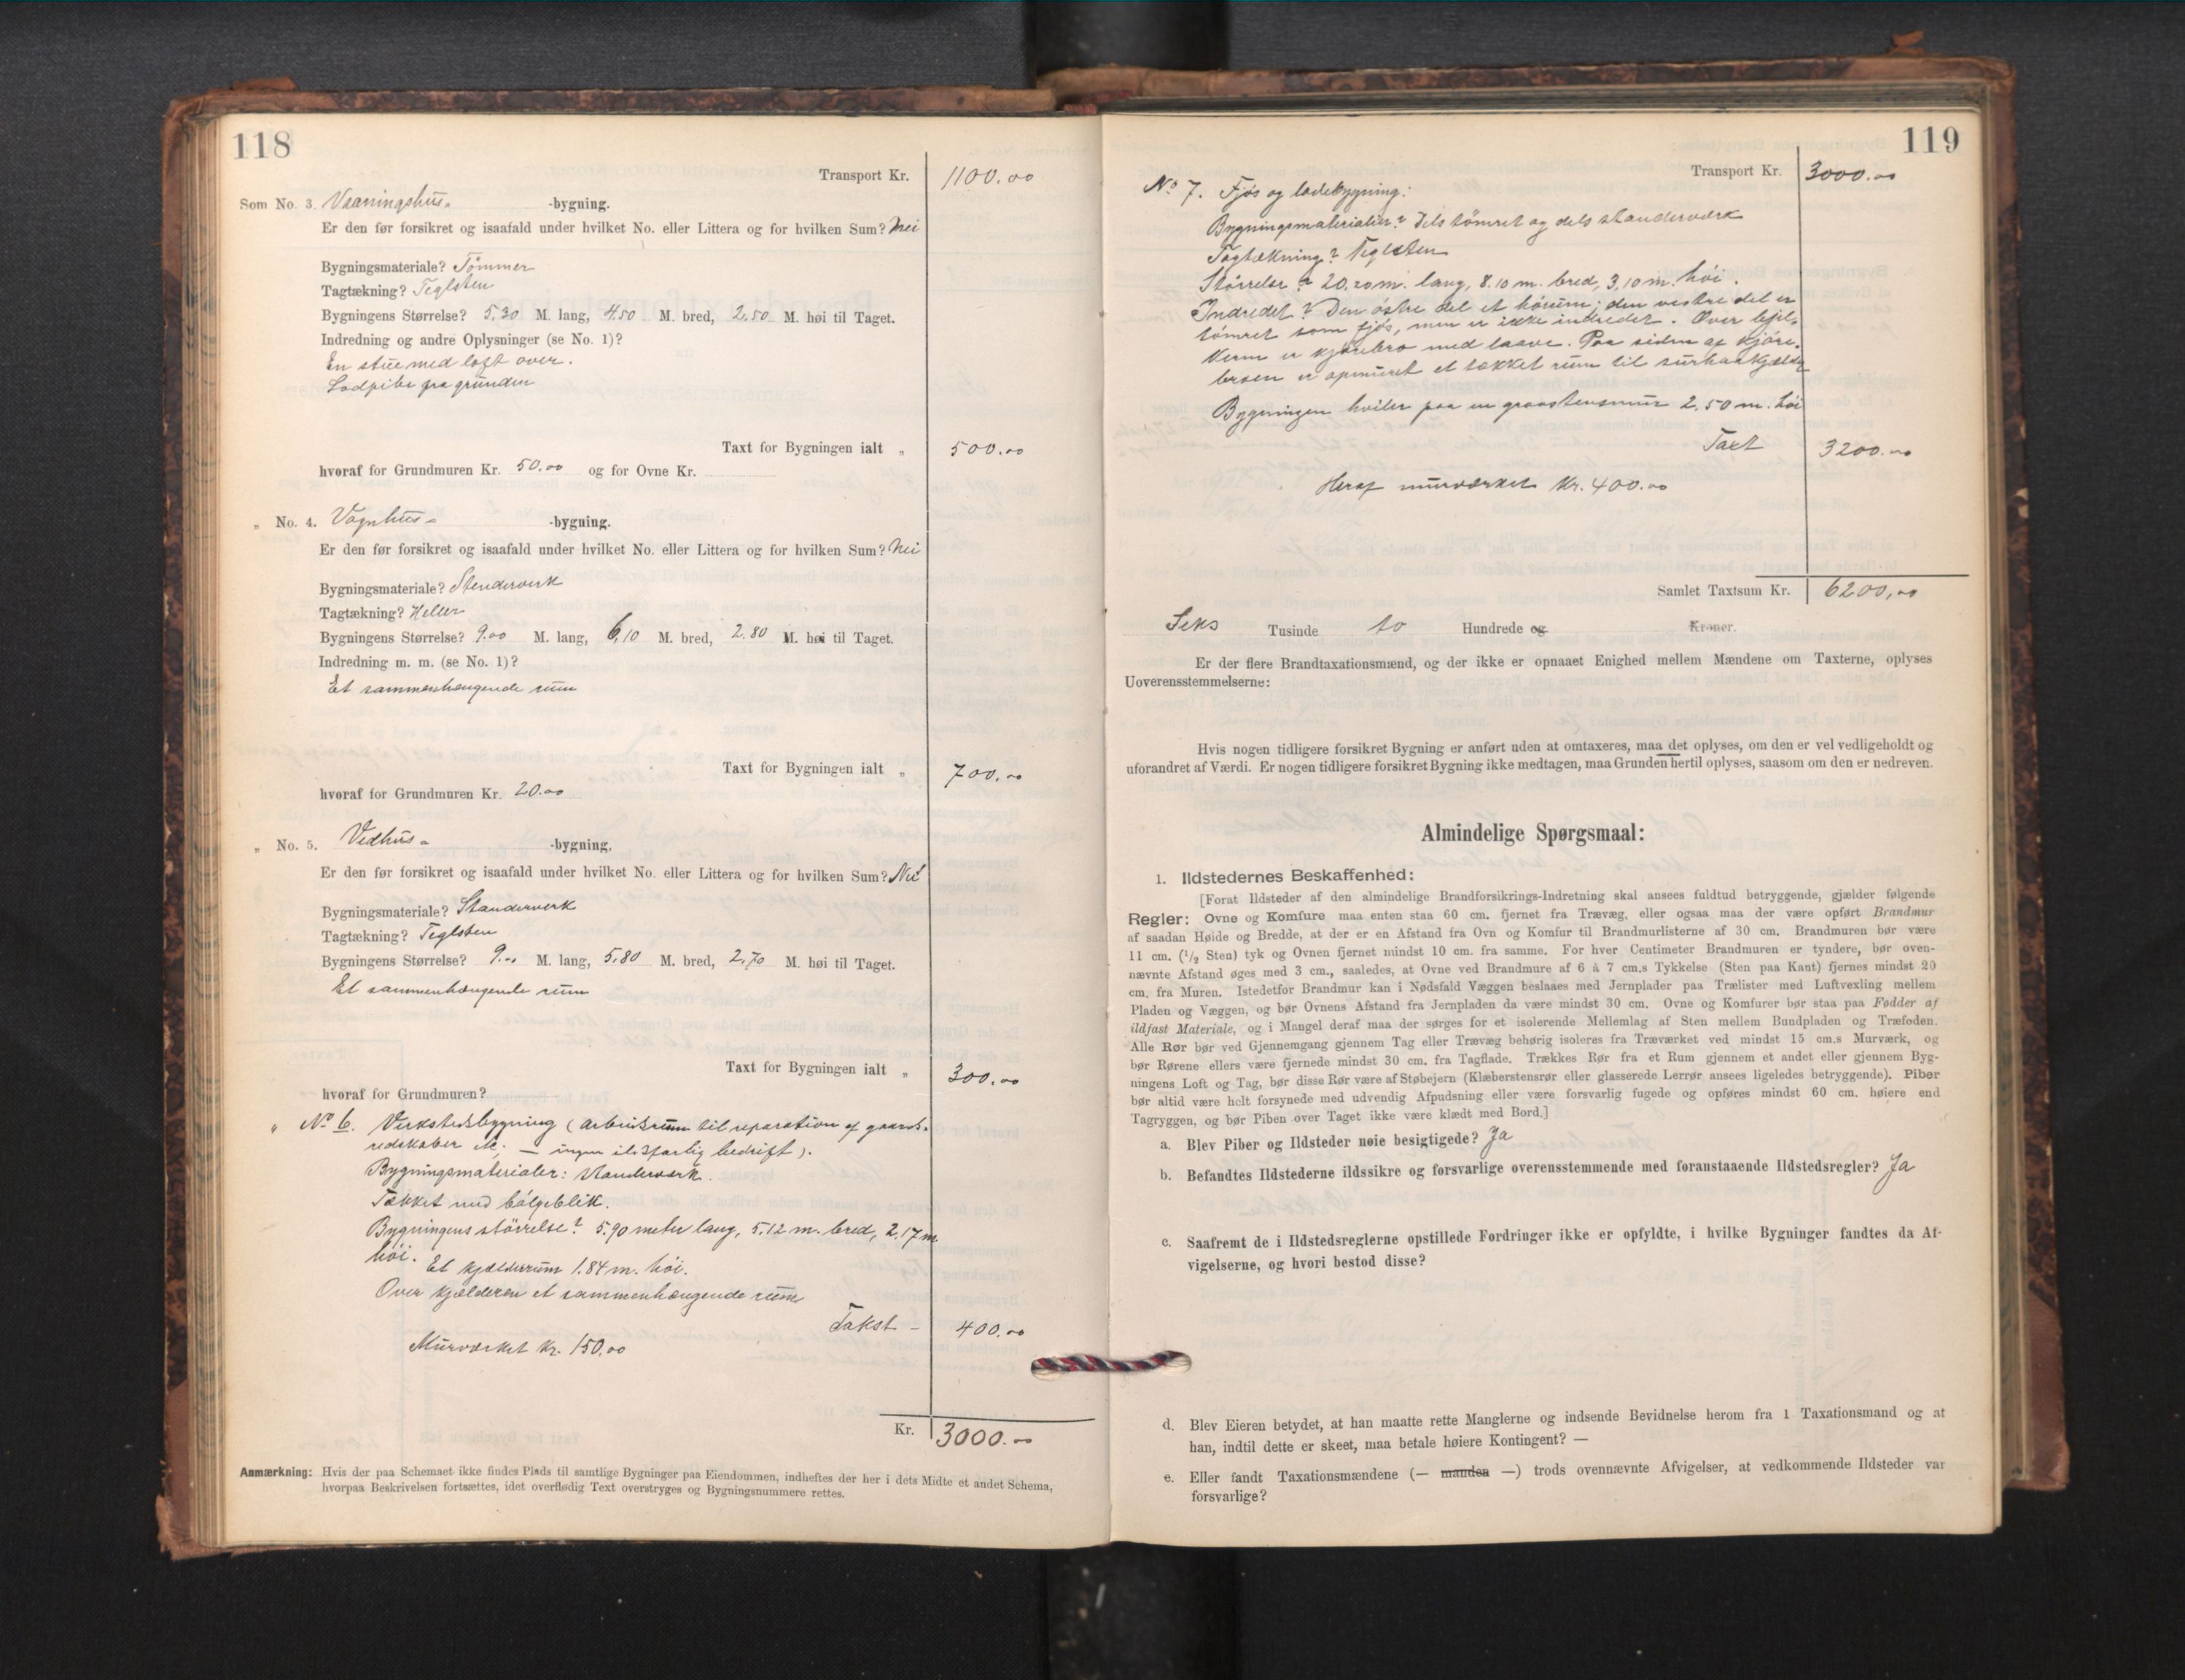 118
Transport Kr. 1100.00
Som No. 3. Vaaningshus- -bygning.
Er den før forsikret og isaafald under hvilket No. eller Littera og for hvilken Sum? Nei
Bygningsmateriale? Tömmer
Tagtækning? Teglsten
Bygningens Størrelse? 5,30 M. lang, 4.50 M. bred, 2,50 M. høi til Taget.
Indredning og andre Oplysninger (se No. 1)?
En stue med loft over.
Lodpibe fra grunden
Taxt for Bygningen ialt „ 500.00
hvoraf for Grundmuren Kr. 50.00 og for Ovne Kr.
„ No. 4. Vognhus- -bygning.
Er den før forsikret og isaafald under hvilket No. eller Littera og for hvilken Sum? Nei
Bygningsmateriale? Stenderverk
Tagtækning? Heller
Bygningens Størrelse? 9.00 M. lang, 6,10 M. bred, 2,80 M. høi til Taget.
Indredning m. m. (se No. 1)?
Et sammenhængende rum
Taxt for Bygningen ialt „ 700.00
hvoraf for Grundmuren Kr. 20.00
„ No. 5. Vedhus- -bygning.
Er den før forsikret og isaafald under hvilket No. eller Littera og for hvilken Sum? Nei
Bygningsmateriale? Standerverk
Tagtækning? Teglsten
Bygningens Størrelse? 9.00 M. lang, 5,80 M. bred, 2,70 M. høi til Taget.
Et sammenhængende rum
Taxt for Bygningen ialt „ 300.00
hvoraf for Grundmuren?
„ No 6. Verkstedsbygning (arbeidsrum til reparation af gaards-
redskaber etc. — ingen ildsfarlig bedrift).
Bygningsmaterialer: Standerværk.
Tækket med bölgeblik.
Bygningens störrelse? 5.90 meter lang, 5,12 m. bred, 2,17 m.
höi. Et kjælderrum 1.84 m. höi.
Over kjælderen et sammenhængende rum
Takst – 400.00
Murværket kr. 150.00
Kr. 3000.00
Anmærkning: Hvis der paa Schemaet ikke findes Plads til samtlige Bygninger paa Eiendommen, indheftes der her i dets Midte et andet Schema,
hvorpaa Beskrivelsen fortsættes, idet overflødig Text overstryges og Bygningsnummere rettes.
119
Transport Kr. 3000.00
No 7. Fjös og ladebygning:
Bygningsmaterialier? Dels tömret og dels standerværk
Tagtækning? Teglsten
Störrelse? 20,20 m. lang, 8.10 m. bred, 3,10 m. höi.
Indredet? Den östre del et hörum; den vestre del er
tömret som fjös, men er ikke indredet. Over bjel-
kerne er kjörebro med laave. Paa siden af kjöre-
broen er opmuret et tækket rum til
Bygningen hviler paa en graastensmur 2,50 m. höi
Taxt 3200.00
Heraf murværket Kr. 400.00
Samlet Taxtsum Kr. 6200,00
Seks Tusinde to Hundrede og Kroner.
Er der flere Brandtaxationsmænd, og der ikke er opnaaet Enighed mellem Mændene om Taxterne, oplyses
Uoverensstemmelserne:
Hvis nogen tidligere forsikret Bygning er anført uden at omtaxeres, maa det oplyses, om den er vel vedligeholdt og
uforandret af Værdi. Er nogen tidligere forsikret Bygning ikke medtagen, maa Grunden hertil oplyses, saasom om den er nedreven.
Almindelige Spørgsmaal:
1. Ildstedernes Beskaffenhed:
[Forat Ildsteder af den almindelige Brandforsikrings-Indretning skal ansees fuldtud betryggende, gjælder følgende
Regler: Ovne og Komfure maa enten staa 60 cm. fjernet fra Trævæg, eller ogsaa maa der være opført Brandmur
af saadan Høide og Bredde, at der er en Afstand fra Ovn og Komfur til Brandmurlisterne af 30 cm. Brandmuren bør være
11 cm. (1/2 Sten) tyk og Ovnen fjernet mindst 10 cm. fra samme. For hver Centimeter Brandmuren er tyndere, bør oven-
nævnte Afstand øges med 3 cm., saaledes, at Ovne ved Brandmure af 6 à 7 cm.s Tykkelse (Sten paa Kant) fjernes mindst 20
cm. fra Muren. Istedetfor Brandmur kan i Nødsfald Væggen beslaaes med Jernplader paa Trælister med Luftvexling mellem
Pladen og Væggen, og bør Ovnens Afstand fra Jernpladen da være mindst 30 cm. Ovne og Komfurer bør staa paa Fødder af
ildfast Materiale, og i Mangel deraf maa der sørges for et isolerende Mellemlag af Sten mellem Bundpladen og Træfoden.
Alle Rør bør ved Gjennemgang gjennem Tag eller Trævæg behørig isoleres fra Træværket ved mindst 15 cm.s Murværk, og
bør Rørene ellers være fjernede mindst 30 cm. fra Tagflade. Trækkes Rør fra et Rum gjennem et andet eller gjennem Byg-
ningens Loft og Tag, bør disse Rør være af Støbejern (Klæberstensrør eller glasserede Lerrør ansees ligeledes betryggende). Piber
bør altid være helt forsynede med udvendig Afpudsning eller være forsvarlig fugede og opføres mindst 60 cm. høiere end
Tagryggen, og bør Piben over Taget ikke være klædt med Bord.]
a. Blev Piber og Ildsteder nøie besigtigede? Ja
b. Befandtes Ildstederne ildssikre og forsvarlige overensstemmende med foranstaaende Ildstedsregler? Ja
c. Saafremt de i Ildstedsreglerne opstillede Fordringer ikke er opfyldte, i hvilke Bygninger fandtes da Af-
vigelserne, og hvori bestod disse?
d. Blev Eieren betydet, at han maatte rette Manglerne og indsende Bevidnelse herom fra 1 Taxationsmand og at
han, indtil dette er skeet, maa betale høiere Kontingent? —
e. Eller fandt Taxationsmændene (— manden —) trods ovennævnte Afvigelser, at vedkommende Ildsteder var
forsvarlige?